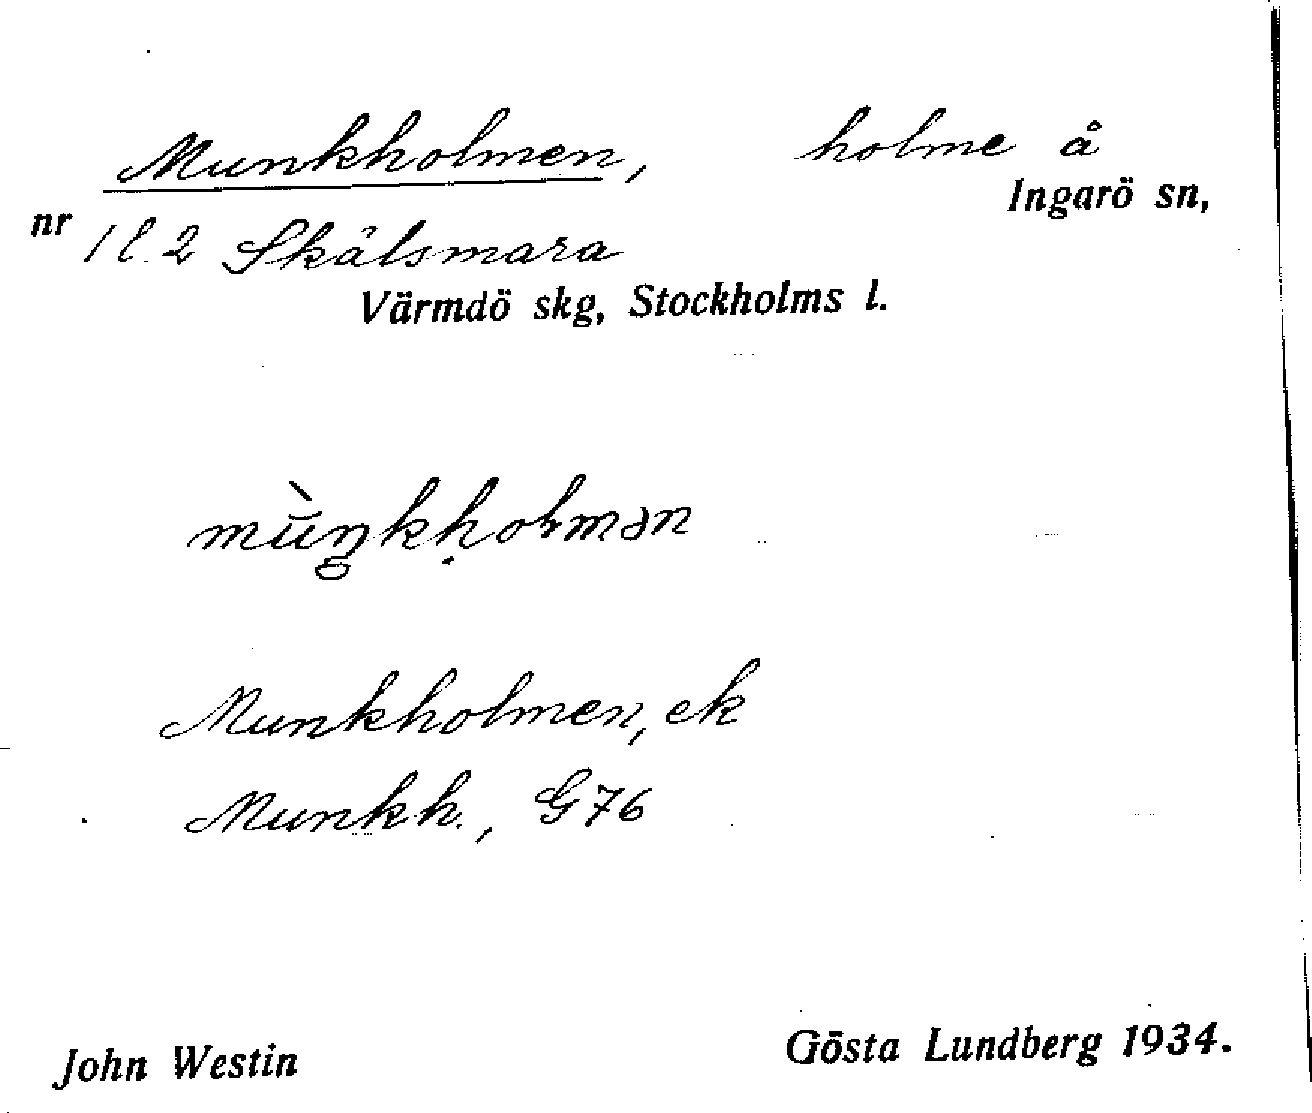 Munkholmen, holme å
Ingarö sn,
nr 1 l. 2 Skälsmara
Värmdö skg, Stockholms l.
Munkholmen, ek
Munkh., G76
John Westin Gösta Lundberg 1934.